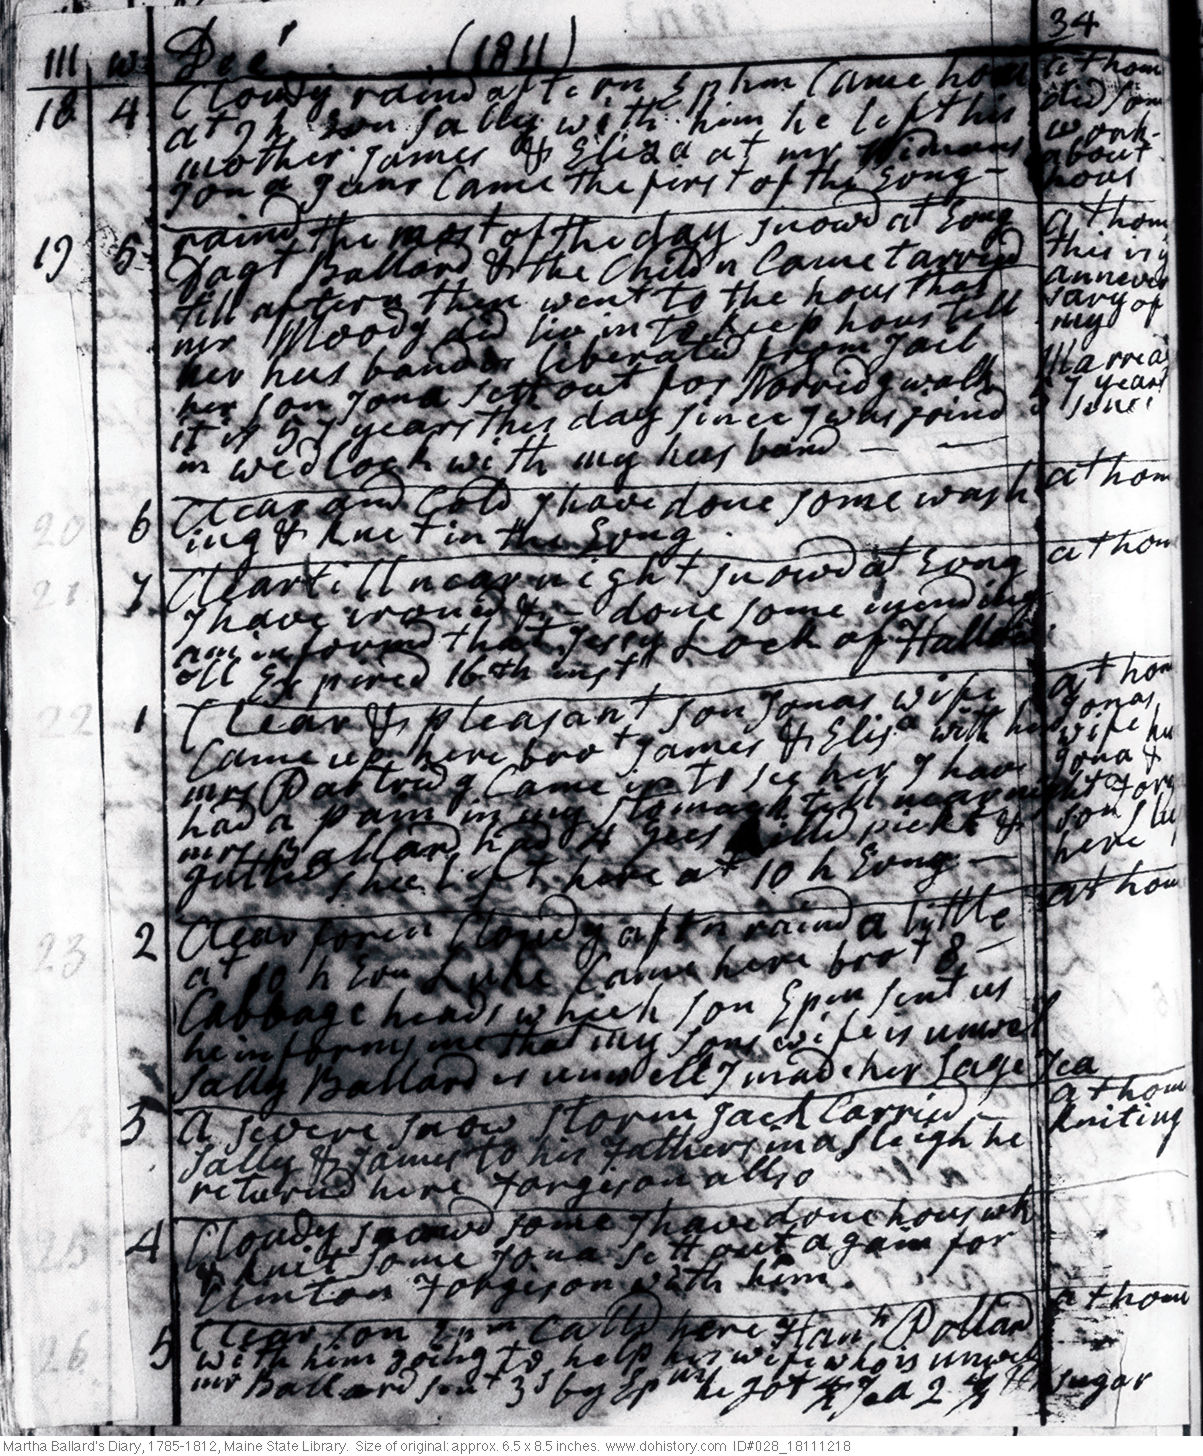 111 w Decr (1811) 34
18 4 Cloudy raind aftern Ephm Came home at home
at 7 h Evn Sally with him he left his did som
mother James & Eliza at mr work
Jona Junr Came the first of the Evng - about hous
19 5 raind the most of the day snowd at Evng at hom
Dagt Ballard & the Childn Came tarried this is y
till aftern then went to the hous that annever
mr Moody did liv in to keep hous till sary of my
her husband is liberated from Jail Marreag
her son Jona sett out for Norridgwalk 57 years
it is 57 years this day since I was joind since
in wedlock with my husband — —
20 6 Clear and Cold I have done some wash at hom
ing & knet in the Evng
21 7 Clear till near night snowd at Evng at hom
I have ironed & - done some mending
am informd that Jessy Lock of Hallow
oll Expired 16th inst
22 1 Clear & pleasant son Jonas wife at hom
Came up here brot James & Elisa with her Jonas wife
mrs Partredg Came in to see her I have Jona &
had a pain in my stomach till near night
mrs Ballard had 4 gees killd pickt & son
guttd shee left here at 10 h Evng — here
23 2 Clear foren Cloudy aftn raind a little at hom
at 10 h Evn Luke Came here brot 8 -
Cabbage heads which son Epm sent us
he informs me that my sons wife is unwell
Sally Ballard is unwell I made her Sage Tea
24 3 A severe snow storm Jack Carried - at hom
Sally & James to his Fathers in a Sleigh he kniting
returnd here Forgeson allso
25 4 Cloudy snowd some I have done hous wk
& knit some Jona sett out again for
Clinton Forgeson with him.
26 5 Clear son Epm Calld here Hanh Ballard at home
with him going to help his wife who is unwell
mr Ballard sent 3s by Epm he got ¼ Tea 2 sugar
Martha Ballard's Diary, 1785-1812, Maine State Library. Size of original: approx. 6.5 x 8.5 inches. www.dohistory.com ID#028_18111218